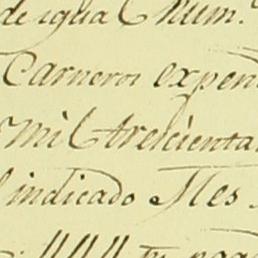 de igual Num.
Carneros expen
mil trescientas
indicado Mes